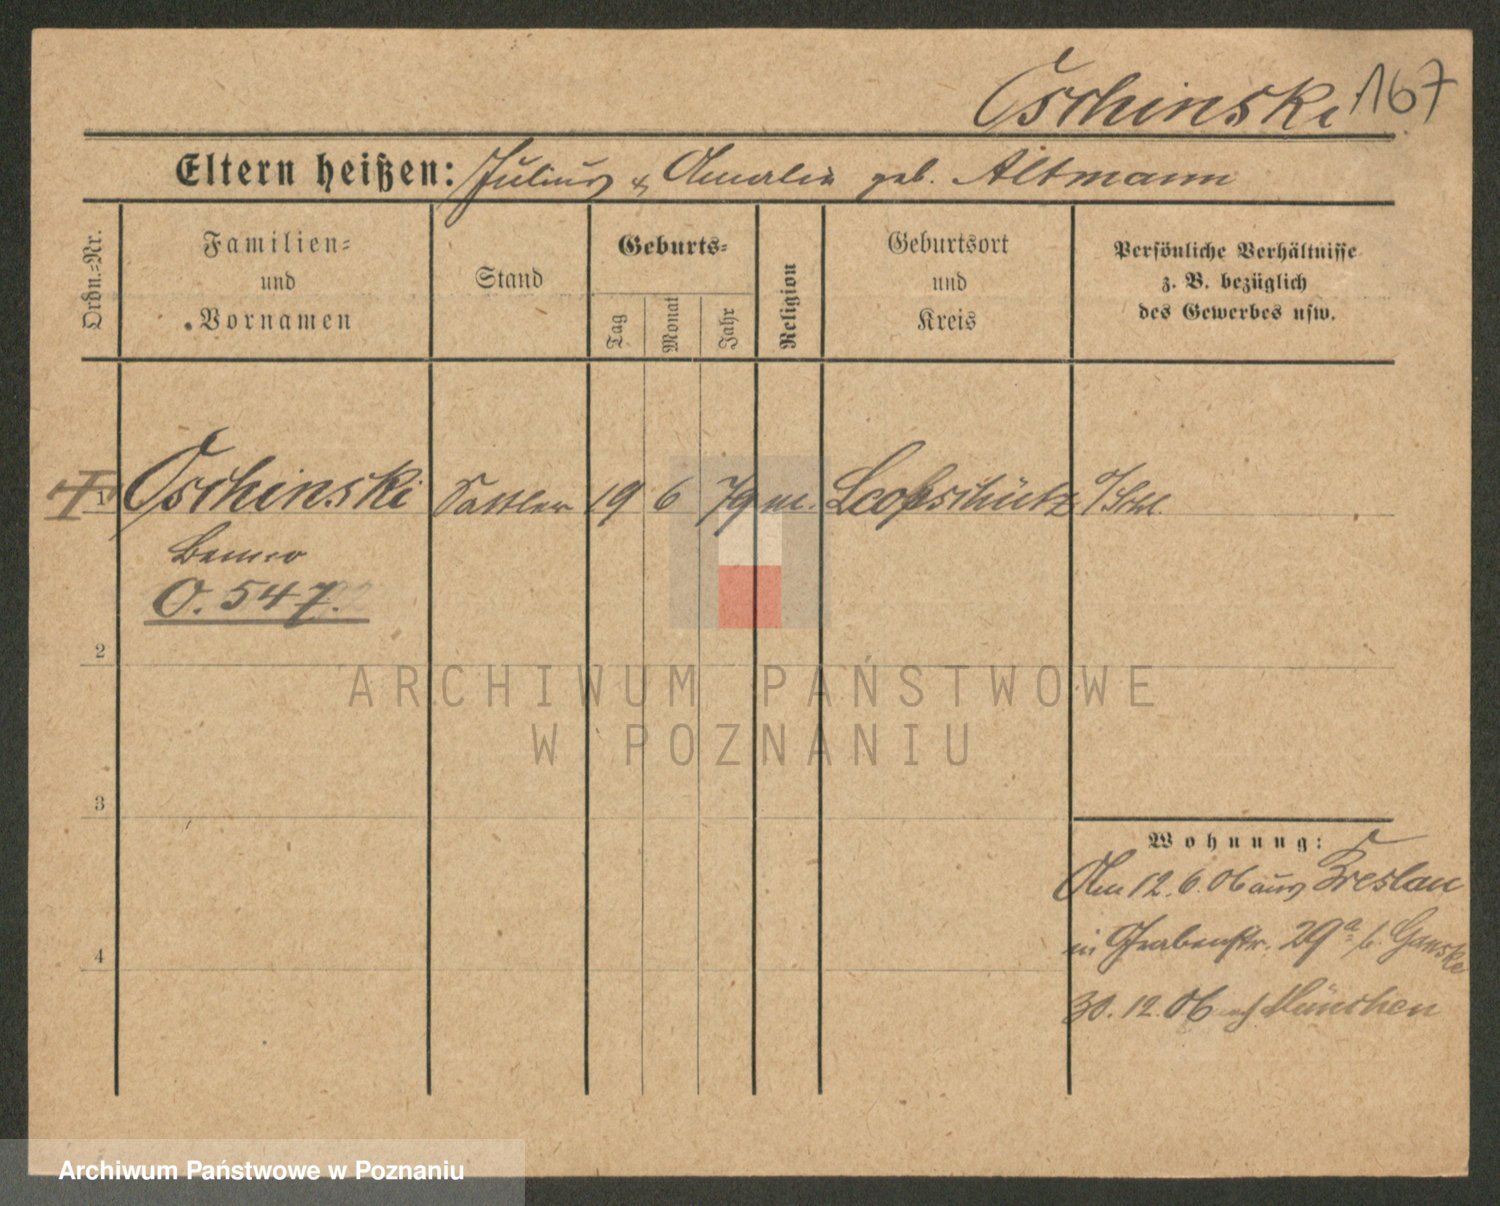 Oschinski 167
Eltern heißen: Julius & Amalie geb. Altmann
Ordn.-Nr.
Familien-
und
Vornamen
Stand
Geburts-
Tag
Monat
Jahr
Religion
Geburtsort
und
Kreis
Persönliche Verhältnisse
z. B. bezüglich
des Gewerbes usw.
1 Oschinski Sattler 19 6 79 m. Leobschütz O/Schl.
Benno
O. 547.
2
3
4
Wohnung:
Am 12.6.06 aus Breslau
in Grabenstr. 29a b. Ganske
30.12.06 nach München
ARCHIWUM PAŃSTWOWE
W POZNANIU
Archiwum Państwowe w Poznaniu